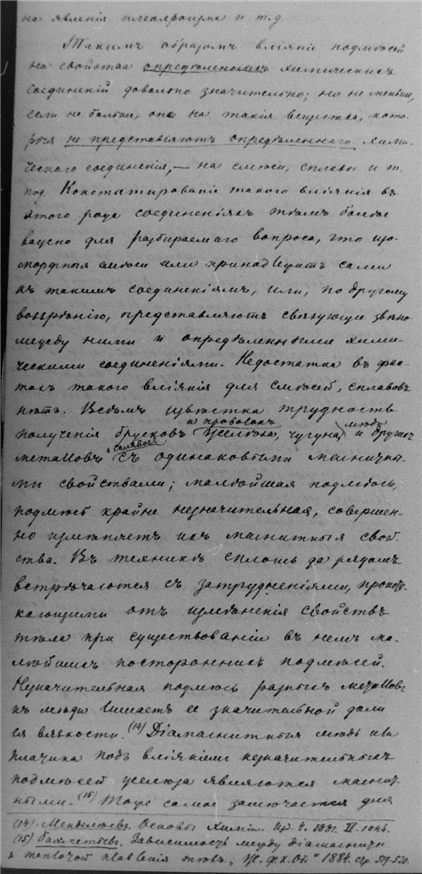 на явленія плеохроизма и т.д.
Такимъ образомъ вліяніе подмѣсей
на свойства опредѣленныхъ химическихъ
соединеній довольно значительно; но не меньше,
если не больше, оно на такія вещества, кото-
рыя не представляютъ опредѣленнаго хими-
ческаго соединенія, — на смѣси, сплавы и т.
под. Констатированіе такого вліянія въ
этого рода соединеніяхъ тѣмъ болѣе
важно для разбираемаго вопроса, что изо-
морфныя смѣси или принадлежатъ сами
къ такимъ соединеніямъ, или, по другому
воззрѣнію, представляютъ связующее звѣно
между ними и опредѣленными хими-
ческими соединеніями. Недостатка въ фак-
тахъ такого вліянія для смѣсей, сплавовъ
нѣтъ. Всѣмъ извѣстна трудность
и проволокъ мѣди
полученія брусковъ желѣза, чугуна, и другихъ
металловъ съ одинаковыми магнитны-
ми свойствами; малѣйшая подмѣсь,
подмѣсь крайне незначительная, совершен-
но измѣняетъ ихъ магнитныя свой-
ства. Въ техникѣ сплошь да рядомъ
встрѣчаются съ затрудненіями, проис-
кающими отъ измѣненія свойствъ
тѣла при существованіи въ немъ ма-
лѣйшихъ постороннихъ подмѣсей.
Незначительная подмѣсь разныхъ металловъ
къ мѣди лишаетъ ее значительной доли
ея вязкости. (14) Діамагнитныя мѣдь и
платина подъ вліяніемъ незначительныхъ
подмѣсей желѣза являются магнит-
ными. (15) Тоже самое замѣчается для
(14). Менделѣевъ. Основы Химіи. Изд. 4. 1881. II.
(15) Бахметьевъ. Зависимость между діамагнитн.
и теплотой плавленія тѣлъ. „Ж. Фх. Об." 1884. стр.